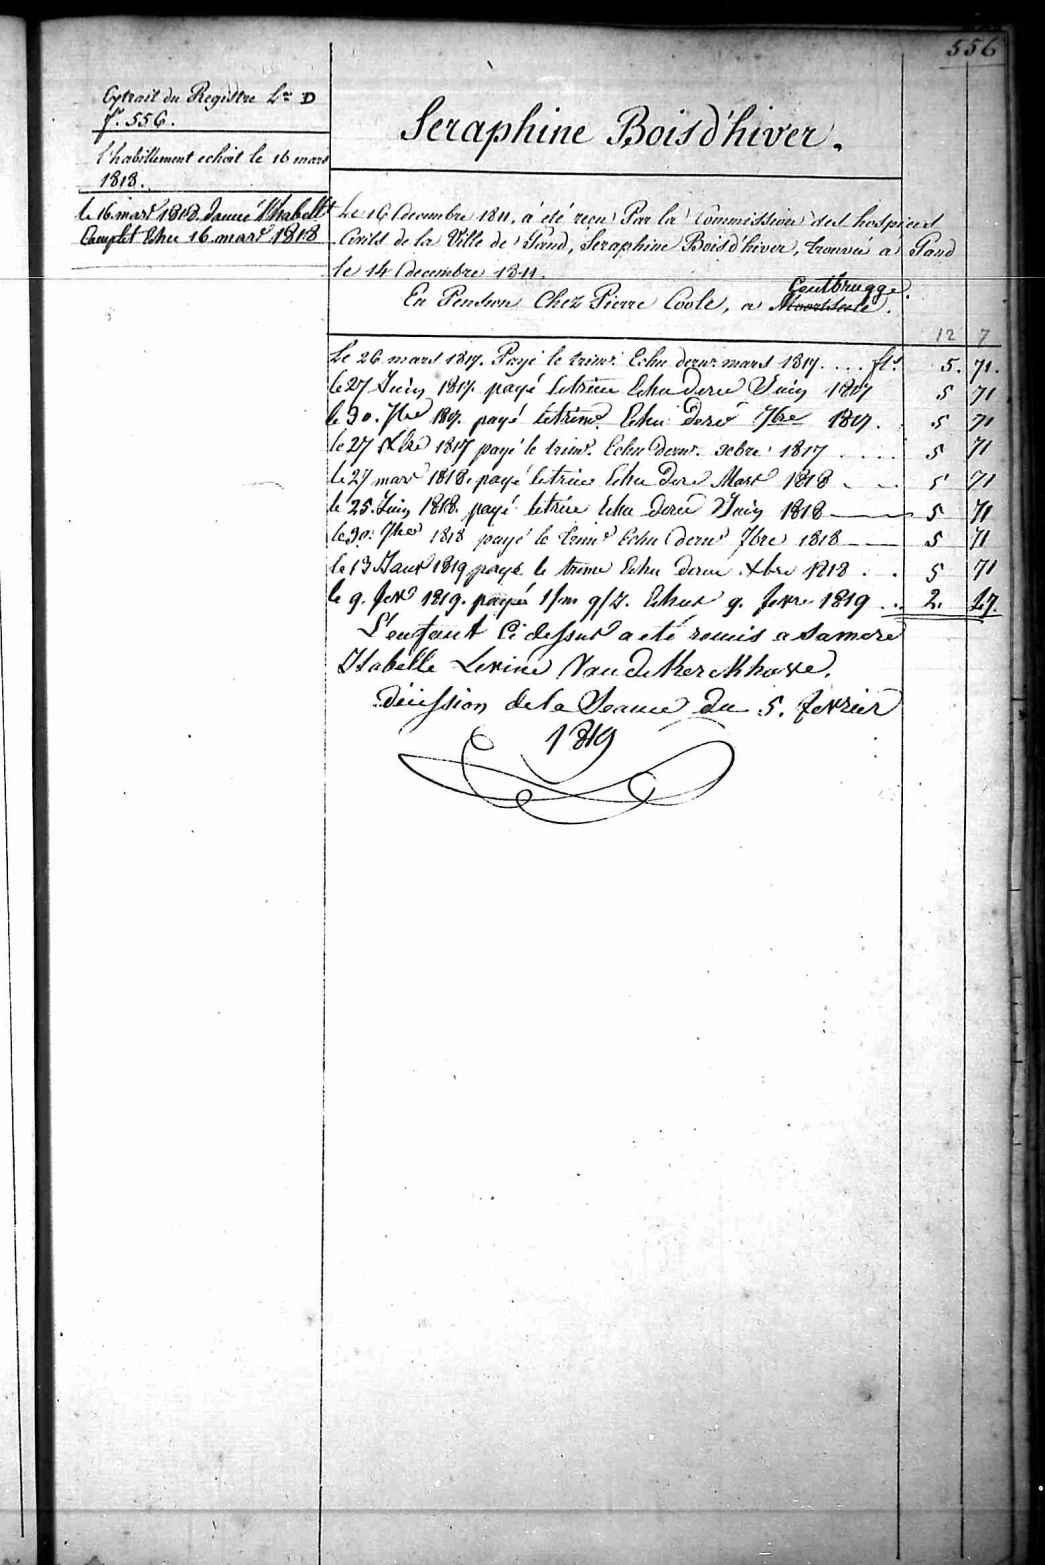 556
Extrait du Registre Lre D
f°. 556.
l'habillement echoit le 16 mars
1818.
le 16 mars 1818. donné l'habellt
Complet Echu 16 mars 1818
Seraphine Boisd'hiver.
Le 16 Decembre 1811, a été reçu Par la Commission des hospices
Civils de la Ville de Gand, Seraphine Boisd'hiver, trouvée a Gand
le 14 Decembre 1811.
Gentbrugge.
En Pension Chez Pierre Coole, a Moortseele.
12 7
Le 26 mars 1817. Payé le trimr. Echu dernr mars 1817 .... fls. 5. 71.
le 27 Juin 1817. payé letrim Echu dere Juin 1817 5 71
le 30. 7bre 1817. payé letrimr. Echu dere 7bre 1817. 5 71
le 27 Xbre 1817 payé le trimr. Echu dernr. xbre 1817 .... 5 71
le 27 mars 1818. payé letrim Echu dere Mars 1818 5 71
le 25. Juin 1818. payé letrim Echu dere Juin 1818 5 71
le 30. 7bre 1818 payé le trimr Echu dernr 7bre 1818 5 71
le 13 Janv 1819 payé le trime Echu dernr Xbre 1818 . . 5 71
le 9. fevr 1819. payé 1/m 9/J. Echus 9. fevr 1819 .. 2. 47.
L'enfant Ci dessus a eté remis a samere
Isabelle Livine Van de Kerckhove.
décission dela Seance du 5. fevrier
1819